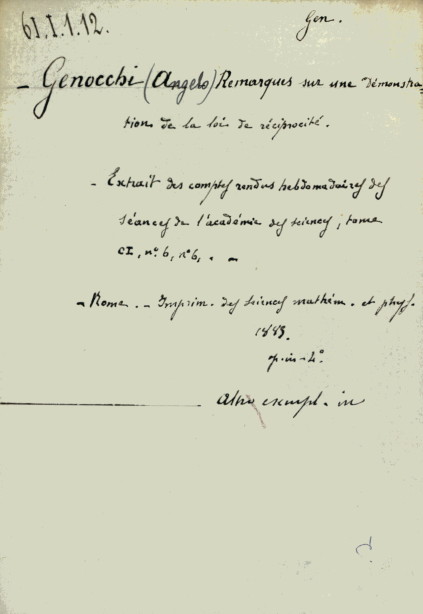 61.I.1.12.
Gen.
- Genocchi (Angelo) Remarques sur une démonstra-
tion de la loi de réciprocité.
- Extrait des comptes rendus hebdomadaires des
séances de l'académie des sciences; tome
CI, n°. 6, n° 6, . -
- Rome. - Imprim. des sciences mathém. et phys.
op. in-4°.
altro exempl. in